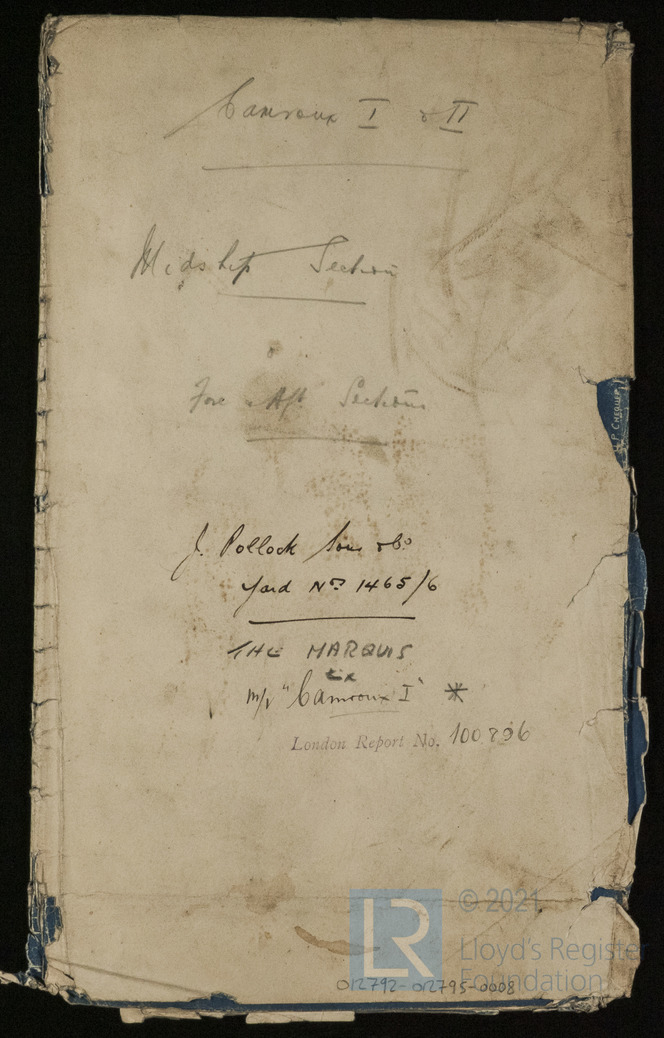 Camroux I & II
Midship Section
Fore & Aft Sections
J. Pollock Sons & Co
Yard Nos 1465/6
THE MARQUIS
Ex
m/v "Camroux I" *
London Report No. 100896
012792-012795-0008
LR
© 2021
Lloyd's Register
Foundation